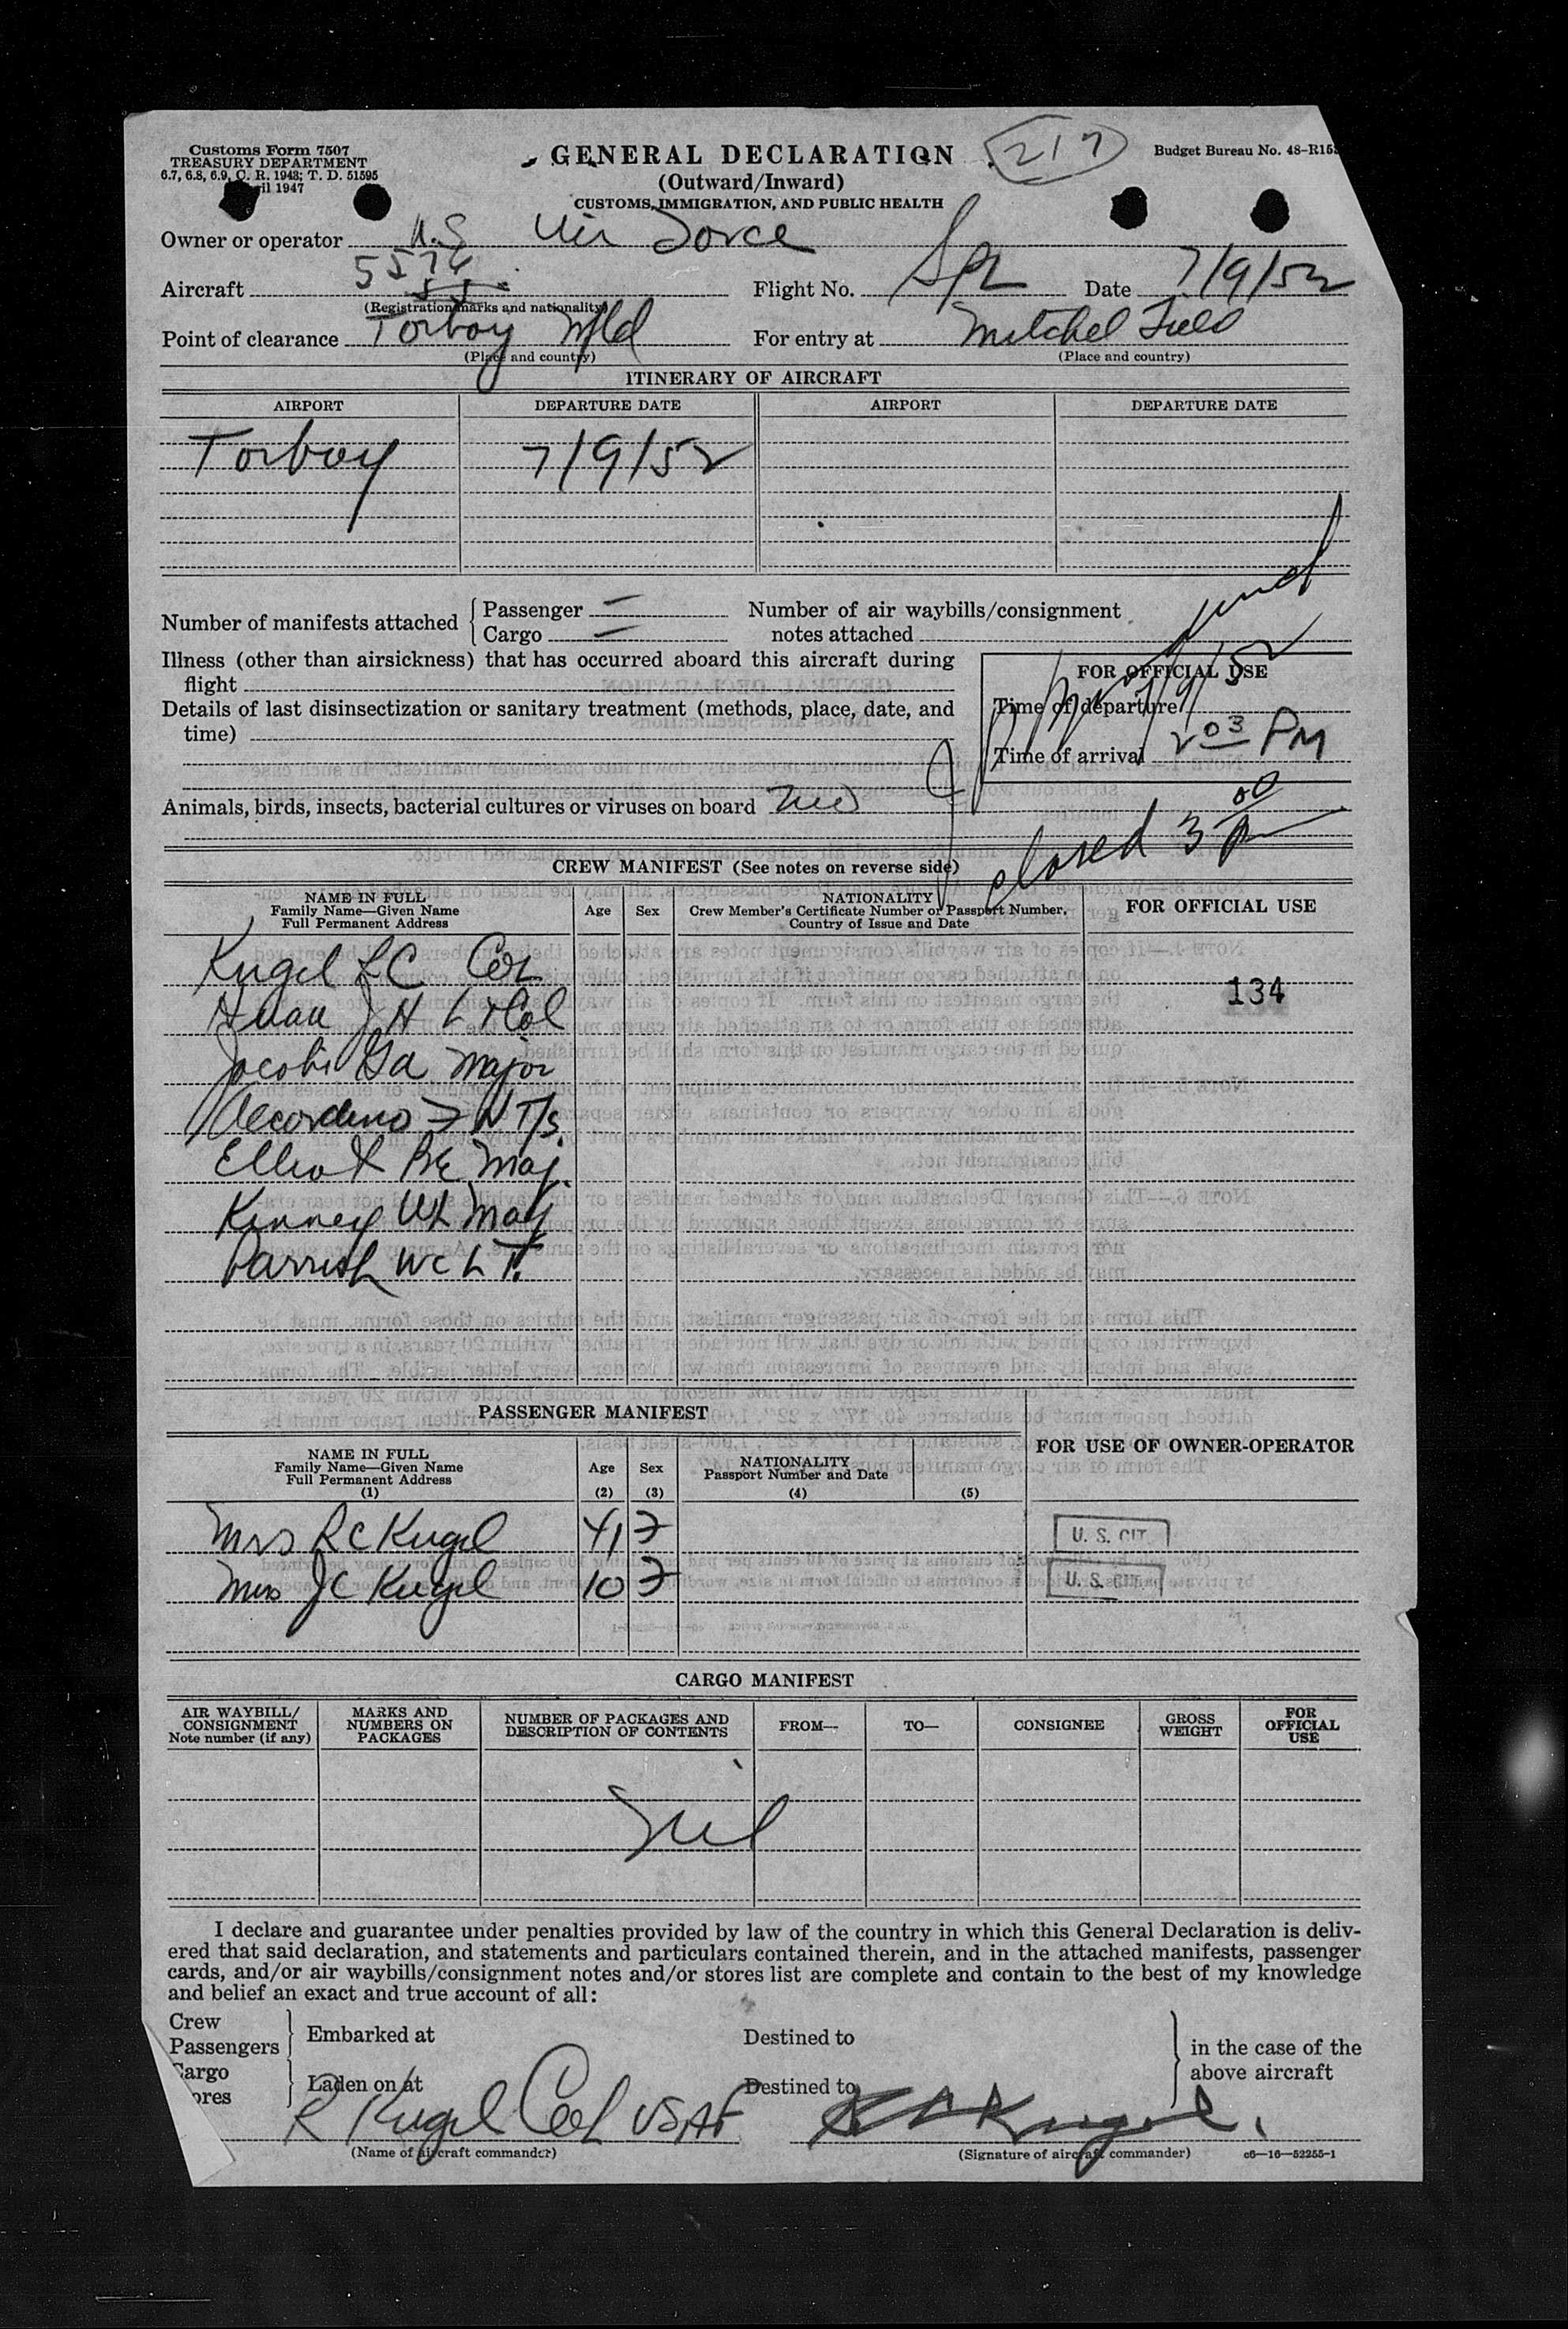 Customs Form 7507
TREASURY DEPARTMENT
6.7, 6.8, 6.9, C. R. 1943; T. D. 51595
ril 1947
GENERAL DECLARATION
(Outward/Inward)
CUSTOMS, IMMIGRATION, AND PUBLIC HEALTH
217
Budget Bureau No. 48-R15
Owner or operator U.S Air Force
Aircraft 5574 Flight No. Spl Date 7/9/52
(Registration marks and nationality)
Point of clearance Torbay Nfld For entry at Mitchel Field
(Place and country) (Place and country)
ITINERARY OF AIRCRAFT
AIRPORT DEPARTURE DATE AIRPORT DEPARTURE DATE
Torbay 7/9/52
Number of manifests attached Passenger — Number of air waybills/consignment
Cargo — notes attached
Illness (other than airsickness) that has occurred aboard this aircraft during
flight
FOR OFFICIAL USE
7/9/52
Details of last disinsectization or sanitary treatment (methods, place, date, and
time)
Time of departure
Time of arrival 2 03 PM
Animals, birds, insects, bacterial cultures or viruses on board
closed 3 00 P
CREW MANIFEST (See notes on reverse side)
NAME IN FULL
Family Name—Given Name
Full Permanent Address
Age Sex
NATIONALITY
Crew Member's Certificate Number or Passport Number,
Country of Issue and Date
FOR OFFICIAL USE
Kugel RC Col
J H Lt Col
134
Jacobi Ga Major
T/S
Elliott BE Maj.
Kinney WL Maj
Parrish WC LT.
PASSENGER MANIFEST
FOR USE OF OWNER-OPERATOR
NAME IN FULL
Family Name—Given Name
Full Permanent Address
(1)
Age
(2)
Sex
(3)
NATIONALITY
Passport Number and Date
(4) (5)
Mrs RC Kugel 41 F U. S. CIT.
Miss JC Kugel 10 F U. S. CIT.
CARGO MANIFEST
AIR WAYBILL/
CONSIGNMENT
Note number (if any)
MARKS AND
NUMBERS ON
PACKAGES
NUMBER OF PACKAGES AND
DESCRIPTION OF CONTENTS
FROM—
TO—
CONSIGNEE
GROSS
WEIGHT
FOR
OFFICIAL
USE
Nil
I declare and guarantee under penalties provided by law of the country in which this General Declaration is deliv-
ered that said declaration, and statements and particulars contained therein, and in the attached manifests, passenger
cards, and/or air waybills/consignment notes and/or stores list are complete and contain to the best of my knowledge
and belief an exact and true account of all:
Crew
Passengers Embarked at Destined to in the case of the
Cargo above aircraft
ores Laden on at Destined to
R Kugel Col USAF R C Kugel.
(Name of aircraft commander) (Signature of aircraft commander) c6—16—52255-1